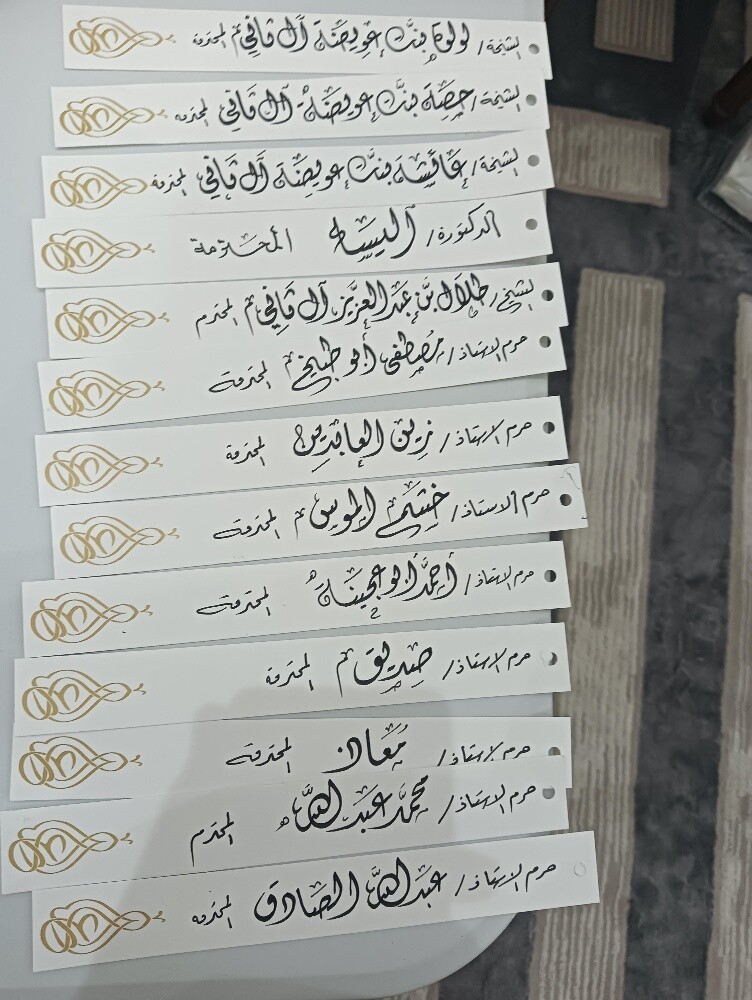 الشيخة/ لولوة بنت عويضة آل ثاني المحترمة
الشيخة/ حصة بنت عويضة آل ثاني المحترمة
الشيخة/ عائشة بنت عويضة آل ثاني المحترمة
الدكتورة/ اليسا المحترمة
الشيخ/ طلال بن عبدالعزيز آل ثاني المحترم
حرم الاستاذ/ مصطفى أبو طبيخ المحترمة
حرم الاستاذ/ زين العابدين المحترمة
حرم الاستاذ/ المحترمة
حرم الاستاذ/ أحمد أبو عجينة المحترمة
حرم الاستاذ/ صديق المحترمة
حرم الاستاذ/ معاذ المحترمة
حرم الاستاذ/ محمد عبدالله المحترم
حرم الاستاذ/ عبدالله الصادق المحترمه